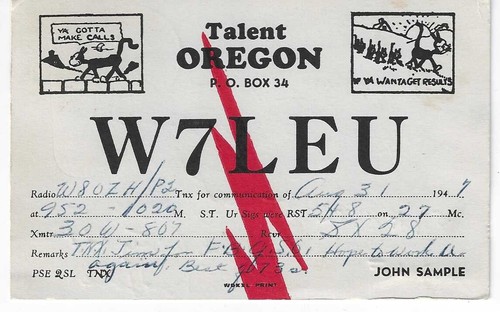 YA GOTTA
MAKE CALLS
IF YA WANTA GET RESULTS
Talent
OREGON
P. O. BOX 34
W7LEU
Radio W8OZH/P2 Tnx for communication of Aug 31 1947
at 952 - 1020 M. S.T. Ur Sigs were RST 5 8 on 27 Mc.
Xmtr 30W-807 Rcvr SX 28
Remarks TNX Jim for Hope to work U
again, Best 73s.
PSE QSL TNX JOHN SAMPLE
WOREL PRINT